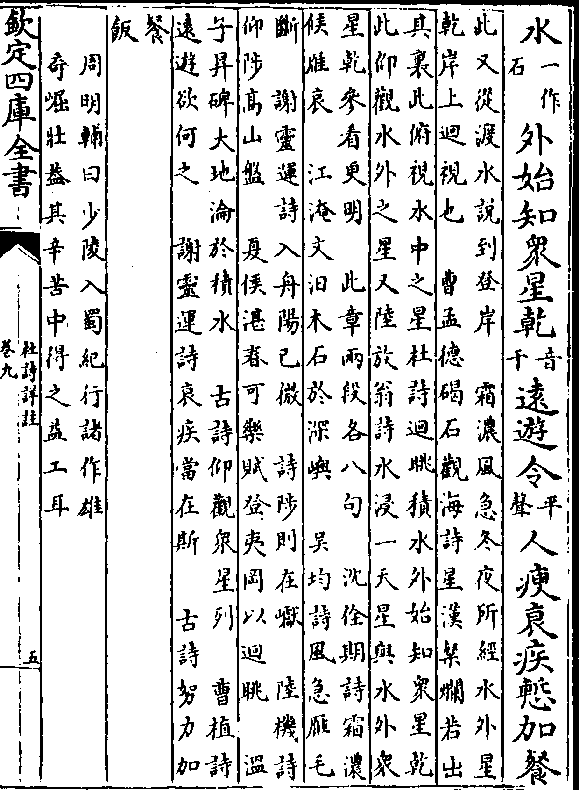 水一作石外始知眾星乾音干遠遊令平聲人瘦衰疾慙加餐
此又從渡水說到登岸　霜濃風急冬夜所經水外星
乾岸上迴視也　曹孟德碣石觀海詩星漢粲爛若出
其裏此俯視水中之星杜詩迴眺積水外始知衆星乾
此仰觀水外之星又陸放翁詩水浸一天星與水外衆
星乾參看更明　此章兩段各八句　沈佺期詩霜濃
候雁哀　江淹文汨木石於深嶼　吴均詩風急雁毛
斷　謝靈運詩入舟陽已微　詩陟則在巘　陸機詩
仰陟高山盤　夏侯湛春可樂賦登夷岡以迴眺　溫
子昇碑大地淪於積水　古詩仰觀衆星列　曹植詩
遠遊欲何之　謝靈運詩衰疾當在斯　古詩努力加
餐
飯
周明輔曰少陵入蜀紀行諸作雄
奇崛壯葢其辛苦中得之益工耳
欽定四庫全書
杜詩詳註
卷九
五